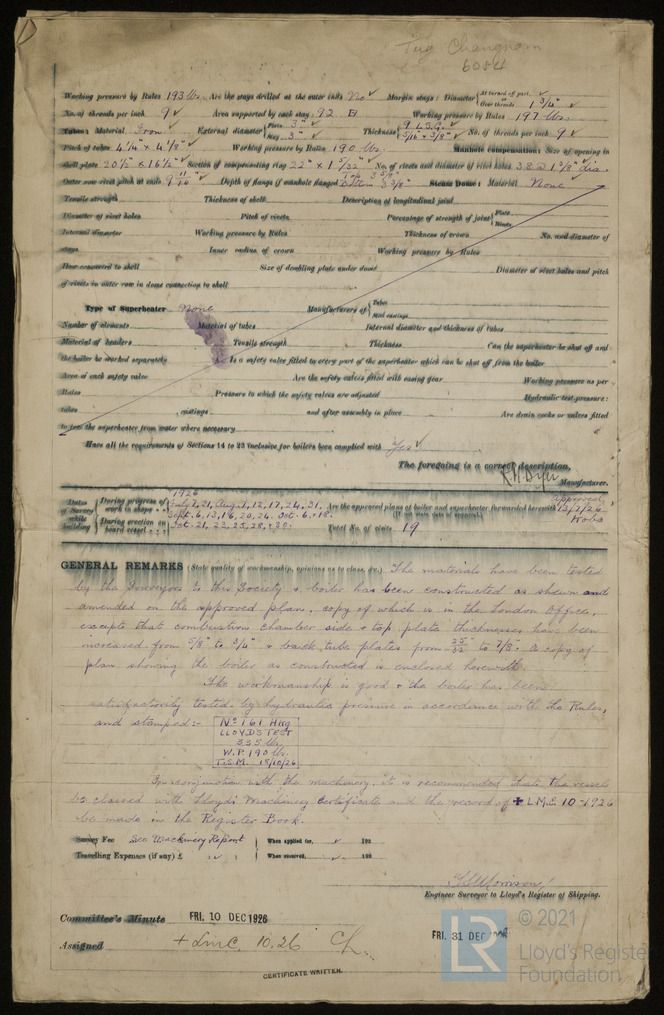 Tug Changnam
6084
Working pressure by Rules 193 lbs. Are the stays drilled at the outer ends No Margin stays: Diameter { At turned off part, Over threads 1 3/4"
No. of threads per inch 9 Area supported by each stay 92 Working pressure by Rules 197 lbs.
Tubes: Material Iron External diameter { Plain 3" Stay 3" Thickness { 9 L.S.G. 5/16" & 3/8" No. of threads per inch 9
Pitch of tubes 4 1/4" x 4 1/8" Working pressure by Rules 190 lbs. Manhole compensation: Size of opening in
shell plate 20 1/2" x 16 1/2" Section of compensating ring 22" x 1 5/32" No. of rivets and diameter of rivet holes 38 @ 1 3/8" dia.
Outer row rivet pitch at ends 9 11/16" Depth of flange if manhole flanged Bottom 3 3/8" Steam Dome: Material None
Tensile strength Thickness of shell Description of longitudinal joint
Diameter of rivet holes Pitch of rivets Percentage of strength of joint { Plate Rivets
Internal diameter Working pressure by Rules Thickness of crown No. and diameter of
stays Inner radius of crown Working pressure by Rules
How connected to shell Size of doubling plate under dome Diameter of rivet holes and pitch
of rivets in outer row in dome connection to shell
Type of Superheater None Manufacturers of { Tubes Steel castings
Number of elements Material of tubes Internal diameter and thickness of tubes
Material of headers Tensile strength Thickness Can the superheater be shut off and
the boiler be worked separately Is a safety valve fitted to every part of the superheater which can be shut off from the boiler
Area of each safety valve Are the safety valves fitted with easing gear Working pressure as per
Rules Pressure to which the safety valves are adjusted Hydraulic test pressure:
tubes , castings and after assembly in place Are drain cocks or valves fitted
to free the superheater from water where necessary
Have all the requirements of Sections 14 to 23 inclusive for boilers been complied with Yes
The foregoing is a correct description,
R.H. Dyer Manufacturer.
1926
Dates of Survey while building { During progress of work in shops - - July 7, 21, Aug. 4, 12, 17, 24, 31. Are the approved plans of boiler and superheater forwarded herewith Approved 13/7/26
Sept. 6, 13, 16, 20, 24. Oct. 6, 18. (If not state date of approval.) Kobe
During erection on board vessel - - - Oct. 21, 22, 25, 28, 30. Total No. of visits 19
GENERAL REMARKS (State quality of workmanship, opinions as to class, &c.) The materials have been tested
by the Surveyors to this Society & boiler has been constructed as shewn and
amended on the approved plan, copy of which is in the London Office,
excepts that combustion chamber side & top plate thicknesses have been
increased from 5/8" to 3/4" & back tube plates from 25/32 to 7/8. A copy of
plan showing the boiler as constructed is enclosed herewith.
The workmanship is good & the boiler has been
satisfactorily tested by hydraulic pressure in accordance with the Rules,
and stamped:-
No 161 HKg
LLOYD'S TEST
335 lbs.
W.P. 190 lb.
T.S.M. 18/10/26
In conjunction with the machinery, it is recommended that the vessel
be classed with Lloyd's Machinery Certificate and the record of + L.M.C. 10-1926
be made in the Register Book.
Survey Fee See Machinery Report When applied for, 192
Travelling Expenses (if any) £ When received, 192
Engineer Surveyor to Lloyd's Register of Shipping.
Committee's Minute FRI. 10 DEC 1926
FRI. 31 DEC 1926
Assigned + LMC 10.26
CERTIFICATE WRITTEN.
LR © 2021
Lloyd's Register
Foundation